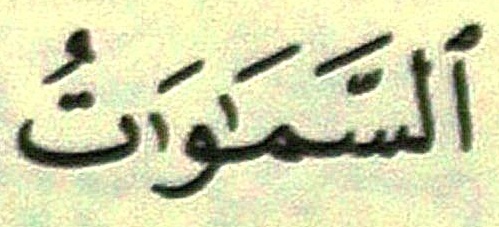 ٱلسَّمَٰوَٰتُ